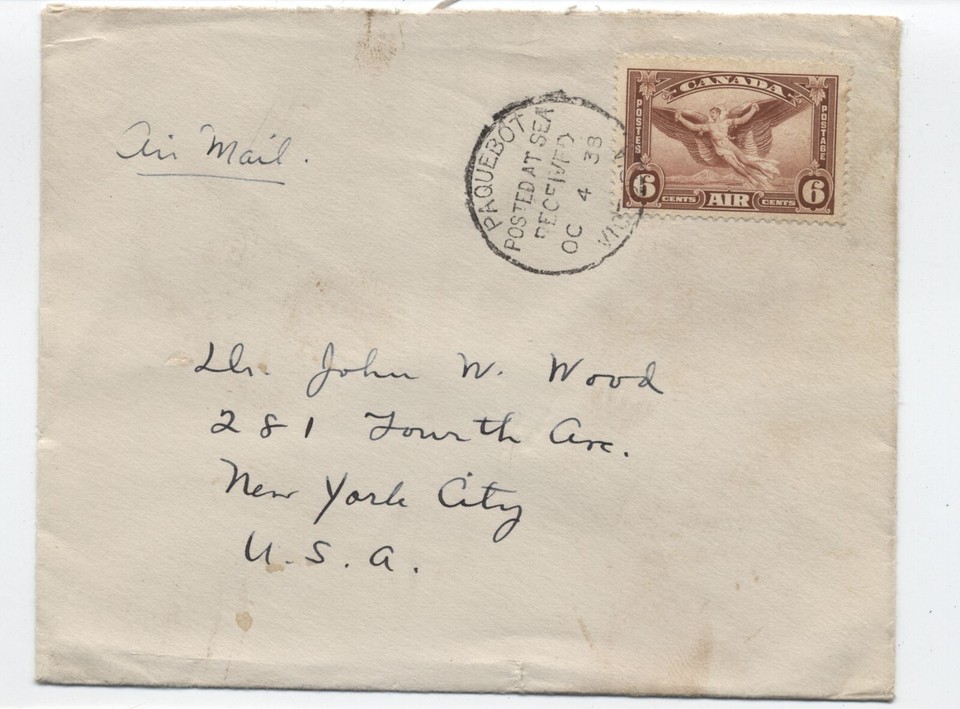 Air Mail.
PAQUEBOT
POSTED AT SEA
RECEIVED
OC 4 38
CANADA
POSTES
POSTAGE
6 CENTS AIR CENTS 6
Dr. John W. Wood
281 Fourth Ave.
New York City
U.S.A.